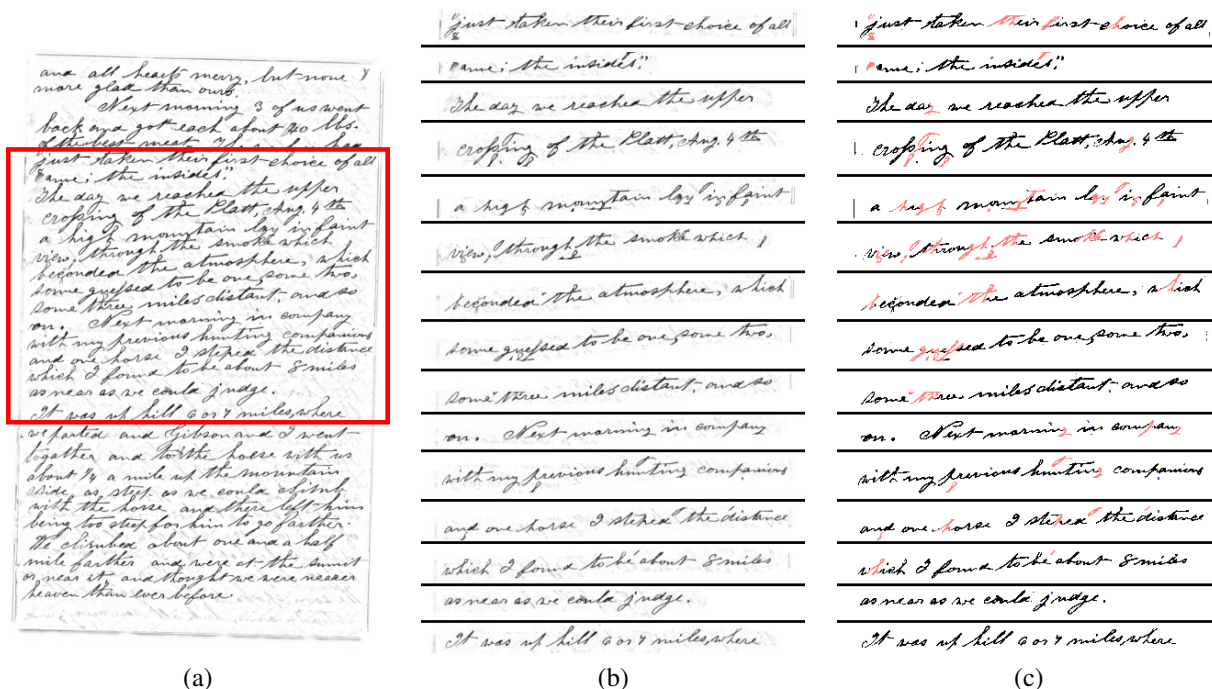 and all hearts merry, but none
more glad than ours.
Next morning 3 of us went
back and got each about 20 lbs.
of the best meat
just taken their first choice of all
ame; the insides".
The day we reached the upper
croſsing of the Platt, Aug. 4th
a high mountain lay in faint
view, through the smoke which
beconded the atmosphere, which
some gueſsed to be one, some two,
some three miles distant, and so
on. Next morning in company
with my previous hunting companions
and one horse I steped the distance
which I found to be about 8 miles
as near as we could judge.
It was up hill 6 or 7 miles, where
we parted and Gibson and I went
together and took the horse with us
about 1/4 a mile up the mountain
side, as steep as we could climb
with the horse and there left him
being too steep for him to go farther.
We climbed about one and a half
mile farther and were at the sumit
or near it, and thought we were nearer
heaven than ever before.
(a)
just taken their first choice of all
ame; the insides".
The day we reached the upper
croſsing of the Platt, Aug. 4th
a high mountain lay in faint
view, through the smoke which
beconded the atmosphere, which
some gueſsed to be one, some two,
some three miles distant, and so
on. Next morning in company
with my previous hunting companions
and one horse I steped the distance
which I found to be about 8 miles
as near as we could judge.
It was up hill 6 or 7 miles, where
(b)
just taken their first choice of all
ame; the insides".
The day we reached the upper
croſsing of the Platt, Aug. 4th
a high mountain lay in faint
view, through the smoke which
beconded the atmosphere, which
some gueſsed to be one, some two,
some three miles distant, and so
on. Next morning in company
with my previous hunting companions
and one horse I steped the distance
which I found to be about 8 miles
as near as we could judge.
It was up hill 6 or 7 miles, where
(c)